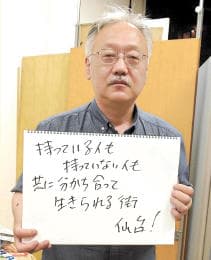 持っている人も
持っていない人も
共に分かち合って
生きられる街
仙台!